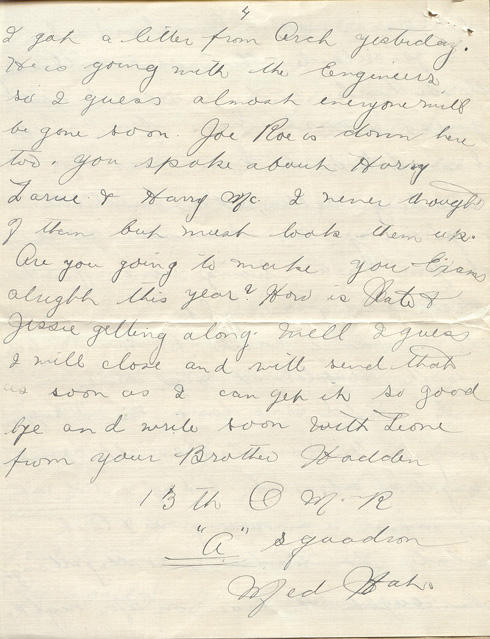 4
I got a letter from Arch yesterday.
He is going with the Engineers
so I guess almost everyone will
be gone soon. Joe Roe is down here
too. you spoke about Harry
Larue & Harry Mc. I never thought
of them but must look them up.
Are you going to make you Exams
alright this year? How is Kate &
Jessie getting along. Well I guess
I will close and will send that
as soon as I can get it so good
bye and write soon with Love
from your Brother Hadden
13th C M. R
"A" squadron
Med Hat.